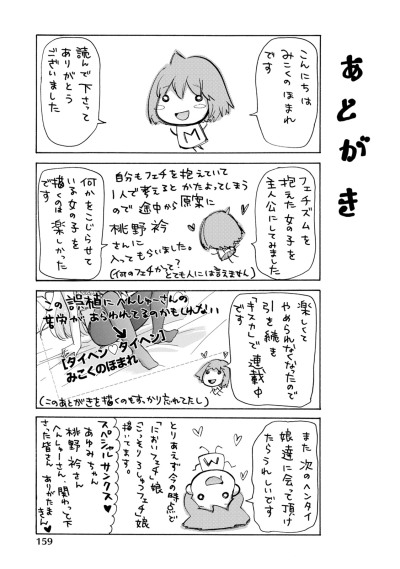 あとがき
こんにちは
みこくのほまれ
です
読んで下さって
ありがとう
ございました
M
フェチズムを
抱えた女の子を
主人公にしてみました
自分もフェチを抱えていて
1人で考えると かたよってしまう
ので 途中から原案に
桃野衿
さんに
入ってもらいました。
(何のフェチかって?
とても人には言えません)
何かをこじらせて
いる女の子を
描くのは 楽しかった
です
楽しくて
やめられなくなったので
引き続き
「キスカ」で 連載中
です
この誤植にへんしゅーさんの
苦労があらわれてるのかもしれない
[タイヘン タイヘン]
みこくのほまれ
(このあとがきを描くのもすっかり忘れてたし)
また 次のヘンタイ
娘達に会って頂け
たらうれしいです
M
とりあえず今の時点で
「においフェチ」娘
「こっそりろしゅつフェチ」娘
描いてます。
スペシャルサンクス♥
あゆみちゃん
桃野衿さん
へんしゅーさん・関わって下
さった皆さん ありがたまきん♥
159